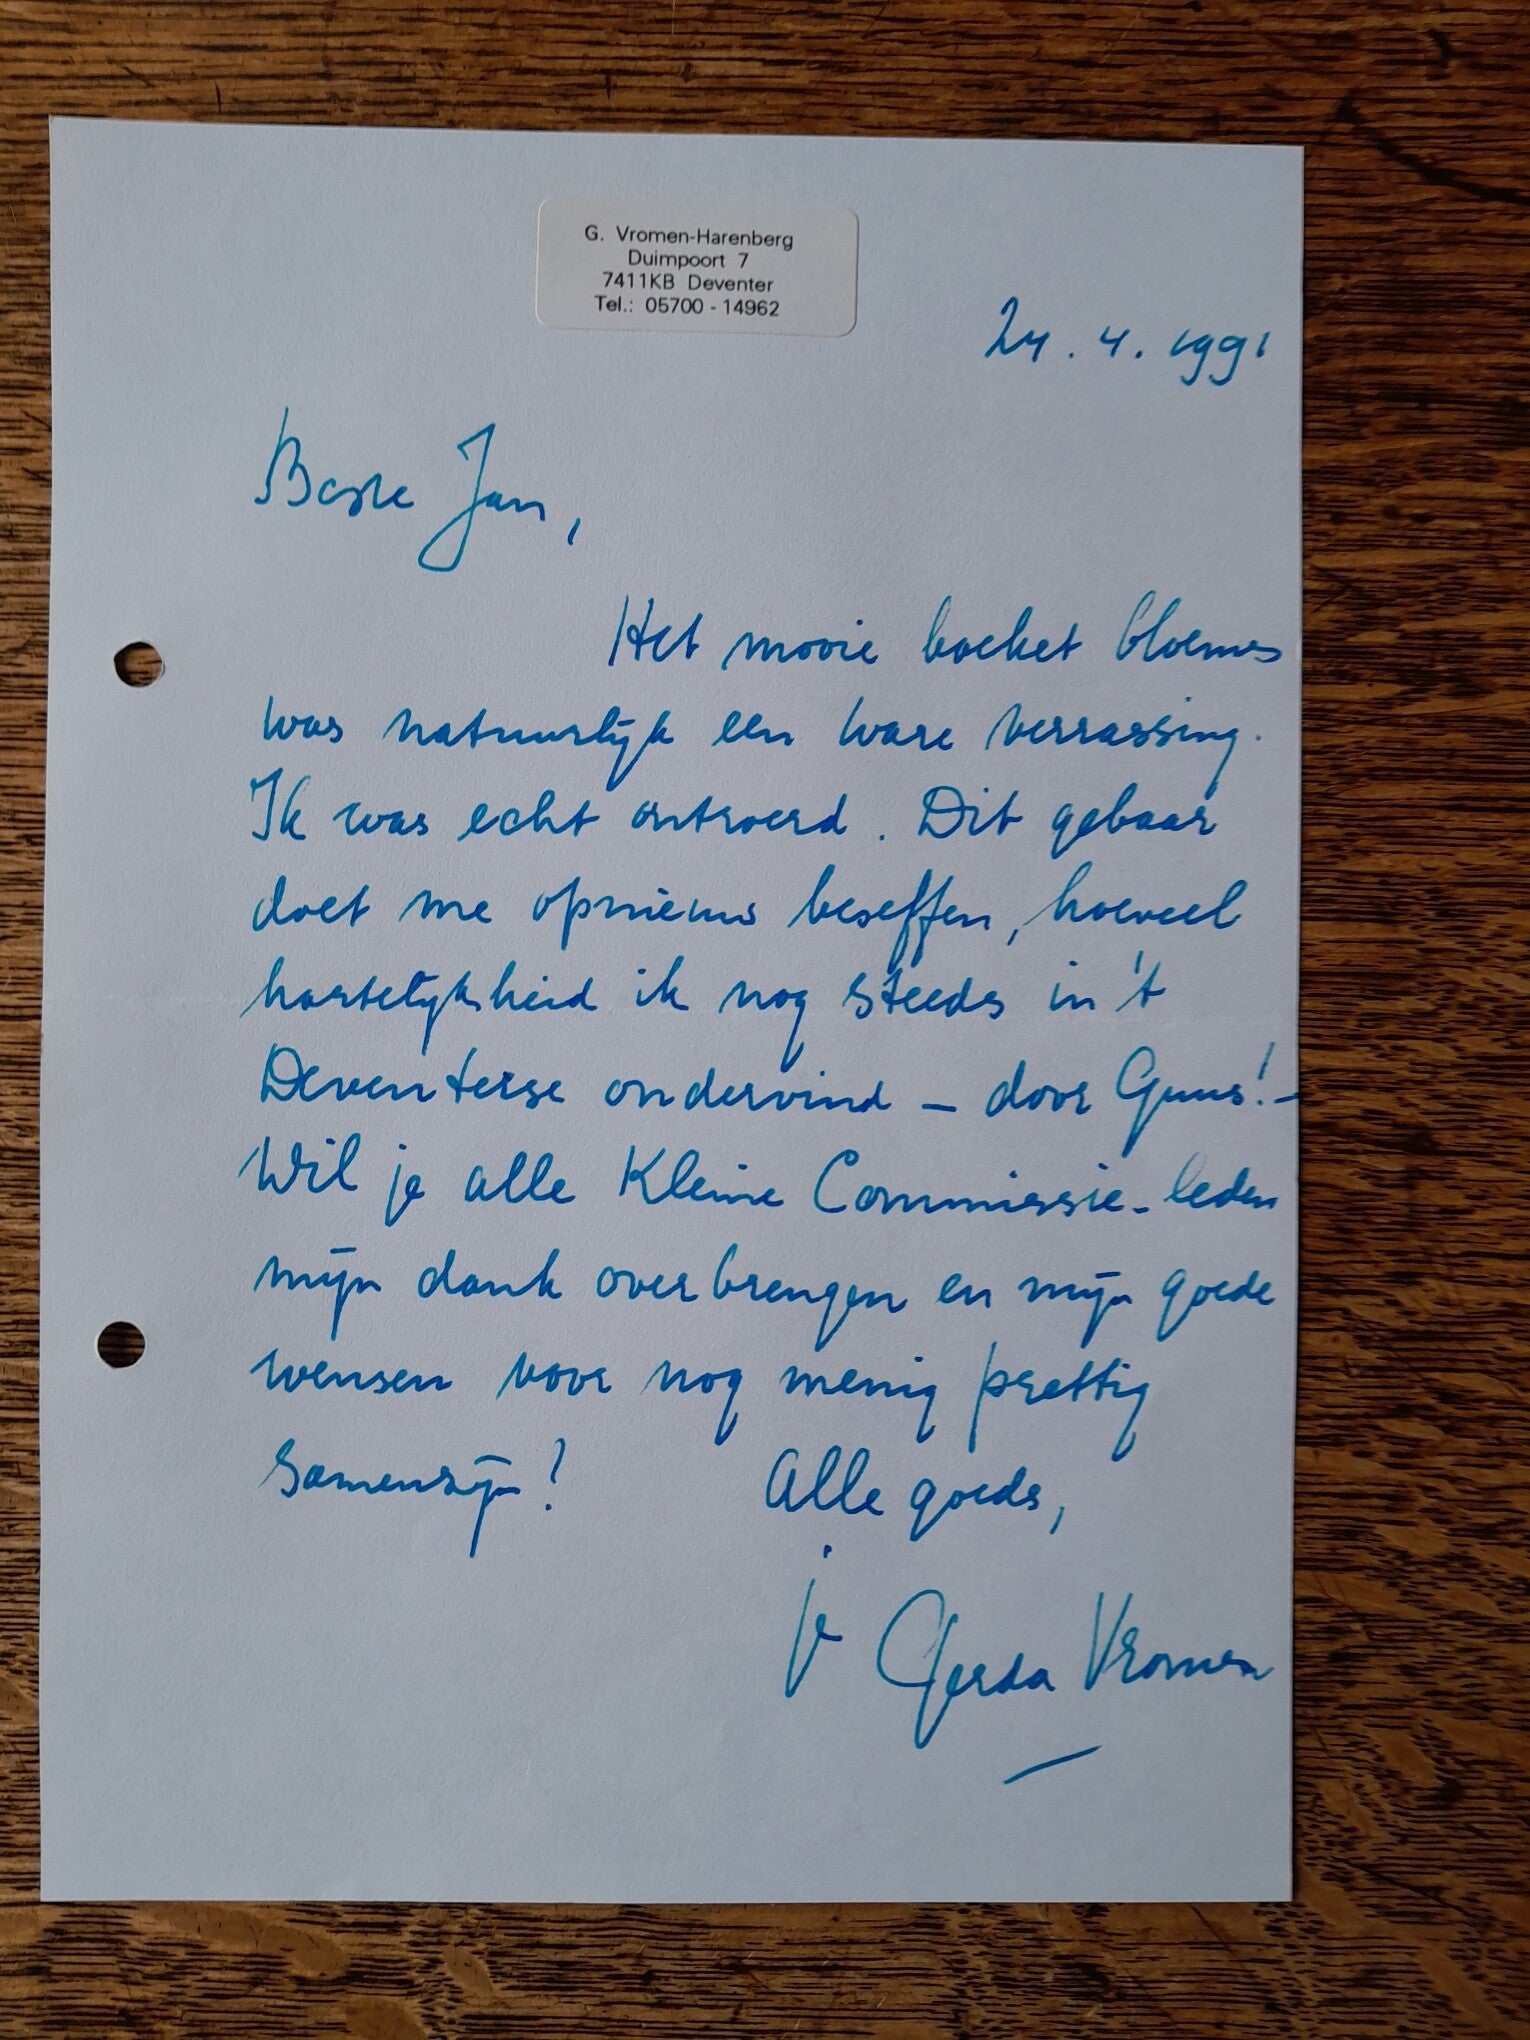 G. Vromen-Harenberg
Duimpoort 7
7411KB Deventer
Tel.: 05700 - 14962
24. 4. 1991
Beste Jan,
Het mooie boeket bloemen
was natuurlijk een ware verrassing.
Ik was echt ontroerd. Dit gebaar
doet me opnieuw beseffen, hoeveel
hartelijkheid ik nog steeds in 't
Deventerse ondervind - door Guus! -
Wil je alle Kleine Commissie-leden
mijn dank overbrengen en mijn goede
wensen voor nog menig prettig
samenzijn!
Alle goeds,
je Gerda Vromen